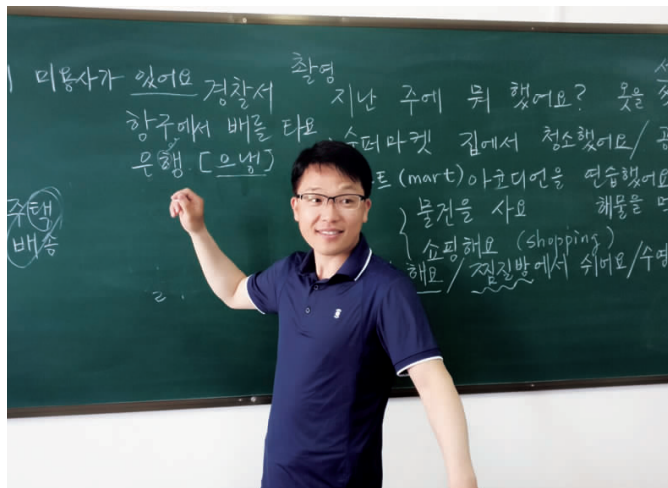 미용사가 있어요 경찰서 촬영
지난 주에 뭐 했어요? 옷을
항구에서 배를 타요 슈퍼마켓 집에서 청소했어요/
은행 [으냉]
트 (mart) 아코디언을 연습했어요
주택 물건을 사요 해물을
배송 쇼핑해요 (shopping)
해요 / 찜질방에서 쉬어요/수영
2.